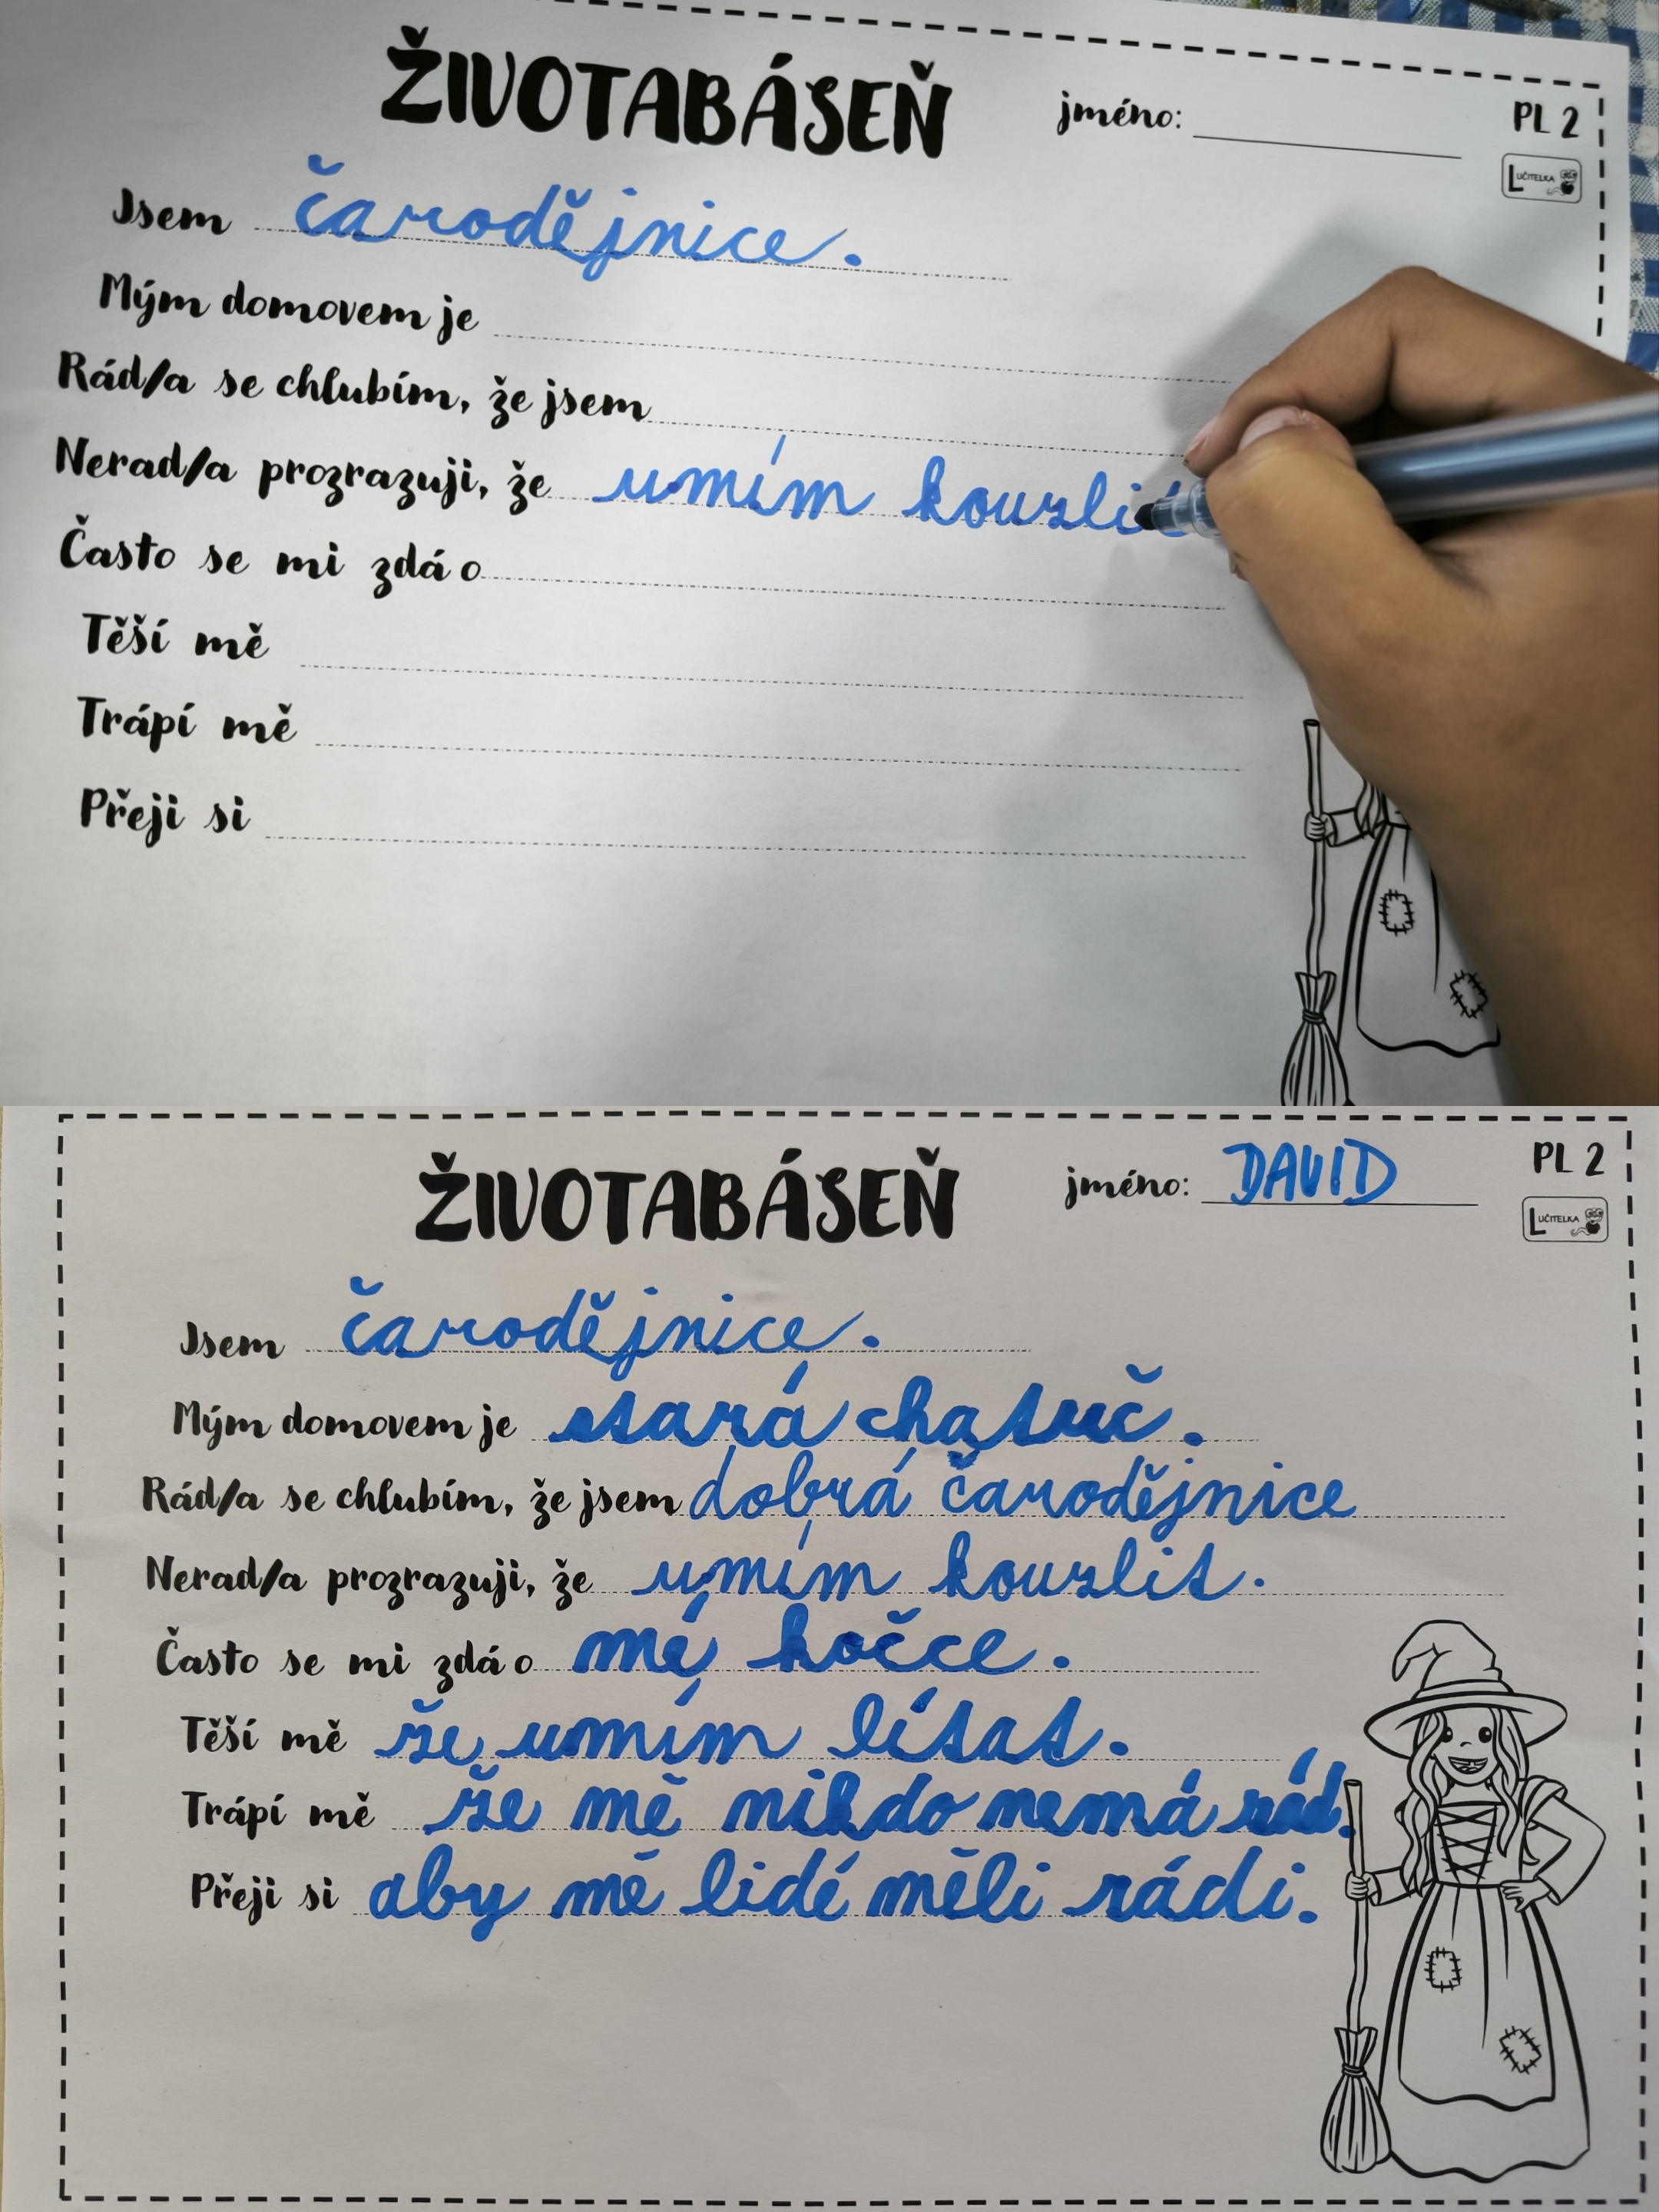 ŽIVOTABÁSEŇ jméno: PL 2
L UČITELKA
Jsem čarodějnice.
Mým domovem je
Rád/a se chlubím, že jsem
Nerad/a prozrazuji, že umím kouzli
Často se mi zdá o
Těší mě
Trápí mě
Přeji si
ŽIVOTABÁSEŇ jméno: DAVID PL 2
L UČITELKA
Jsem čarodějnice.
Mým domovem je stará chatrč.
Rád/a se chlubím, že jsem dobrá čarodějnice
Nerad/a prozrazuji, že umím kouzlit.
Často se mi zdá o mé kočce.
Těší mě že umím lítat.
Trápí mě že mě nikdo nemá rád.
Přeji si aby mě lidé měli rádi.